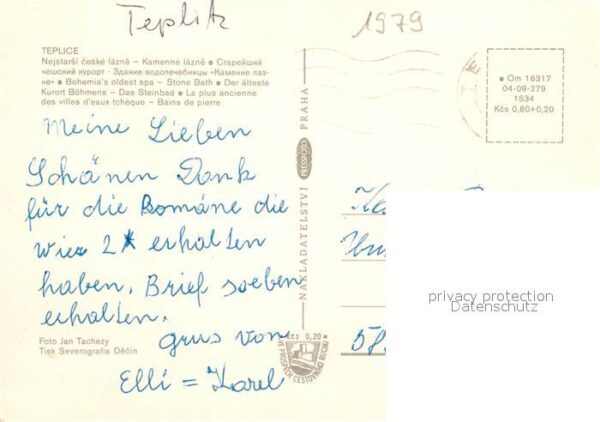 Teplitz
1979
TEPLICE
Nejstarší české lázně – Kamenné lázně ● Старейший
чешский курорт - Здание водолечебницы «Камение лаз-
не» ● Bohemia's oldest spa – Stone Bath ● Der älteste
Kurort Böhmens – Das Steinbad ● La plus ancienne
des villes d'eaux tchéque – Bains de pierre
● Om 16317
04-09-279
1534
Kčs 0,80+0,20
Meine Lieben
Schänen Dank
für die Romane die
wier 2x erhalten
haben. Brief soeben
erhalten.
grus von
Elli = Karel
NAKLADATELSTVÍ PRESSFOTO PRAHA
privacy protection
Datenschutz
58
Foto Jan Tachezy
Tisk Severografia Děčín
Kčs 0,20
VE PROSPĚCH CESTOVNÍHO RUCHU